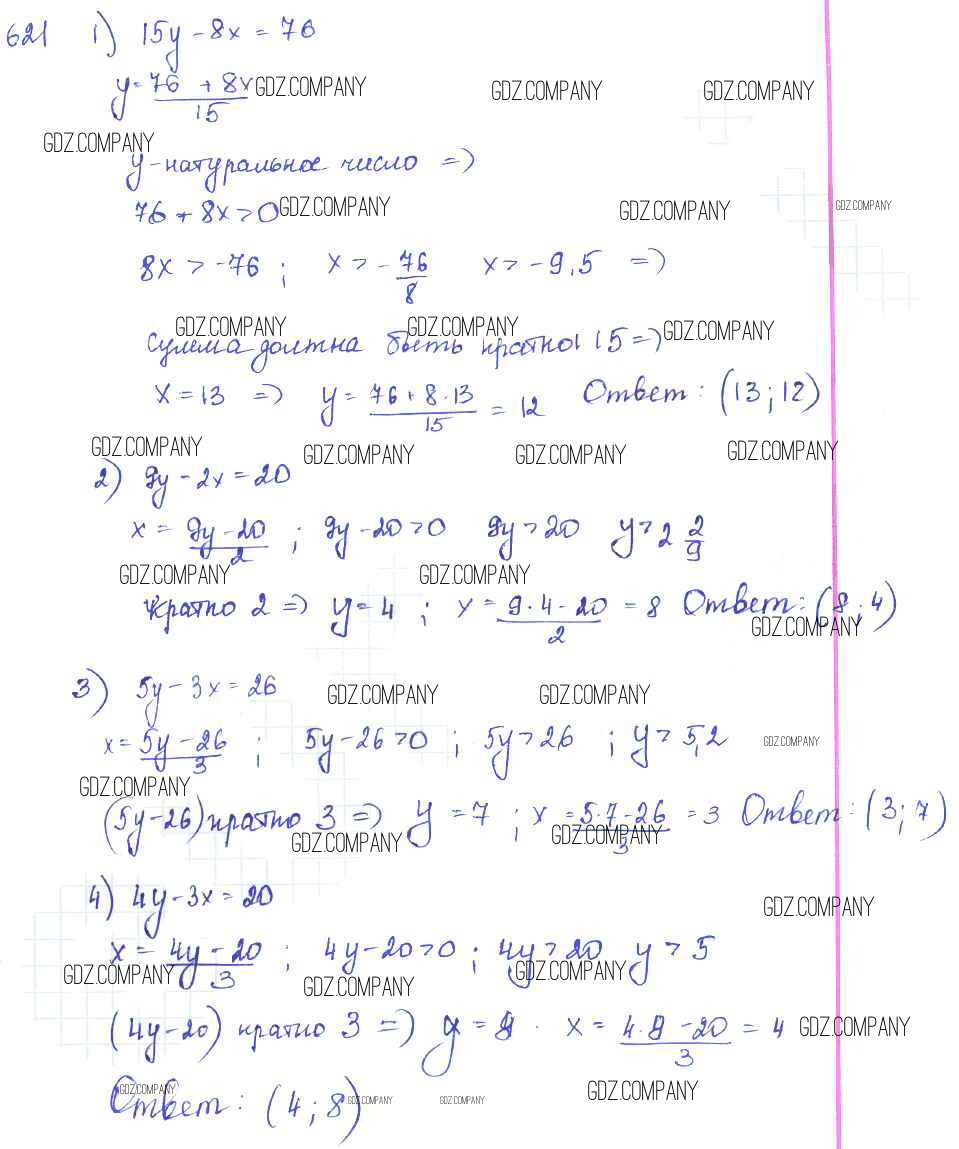 621 1) 15y - 8x = 76
y = (76 + 8x)/15 GDZ.COMPANY GDZ.COMPANY GDZ.COMPANY
GDZ.COMPANY
y - натуральное число =>
76 + 8x > 0 GDZ.COMPANY GDZ.COMPANY GDZ.COMPANY
8x > -76 ; x > - 76/8 x > -9,5 =>
GDZ.COMPANY GDZ.COMPANY GDZ.COMPANY
сумма должна быть кратно 15 =>
x = 13 => y = (76 + 8 · 13)/15 = 12 Ответ: (13; 12)
GDZ.COMPANY GDZ.COMPANY GDZ.COMPANY GDZ.COMPANY
2) 9y - 2x = 20
x = (9y - 20)/2 ; 9y - 20 > 0 9y > 20 y > 2 2/9
GDZ.COMPANY GDZ.COMPANY
кратно 2 => y = 4 ; x = (9 · 4 - 20)/2 = 8 Ответ: (8; 4)
GDZ.COMPANY
3) 5y - 3x = 26 GDZ.COMPANY GDZ.COMPANY
x = (5y - 26)/3 ; 5y - 26 > 0 ; 5y > 26 ; y > 5,2 GDZ.COMPANY
GDZ.COMPANY
(5y - 26) кратно 3 => y = 7 ; x = (5 · 7 - 26)/3 = 3 Ответ: (3; 7)
GDZ.COMPANY GDZ.COMPANY
4) 4y - 3x = 20 GDZ.COMPANY
x = (4y - 20)/3 ; 4y - 20 > 0 ; 4y > 20 y > 5
GDZ.COMPANY GDZ.COMPANY GDZ.COMPANY
(4y - 20) кратно 3 => y = 8 . x = (4 · 8 - 20)/3 = 4 GDZ.COMPANY
GDZ.COMPANY GDZ.COMPANY GDZ.COMPANY GDZ.COMPANY
Ответ: (4; 8)